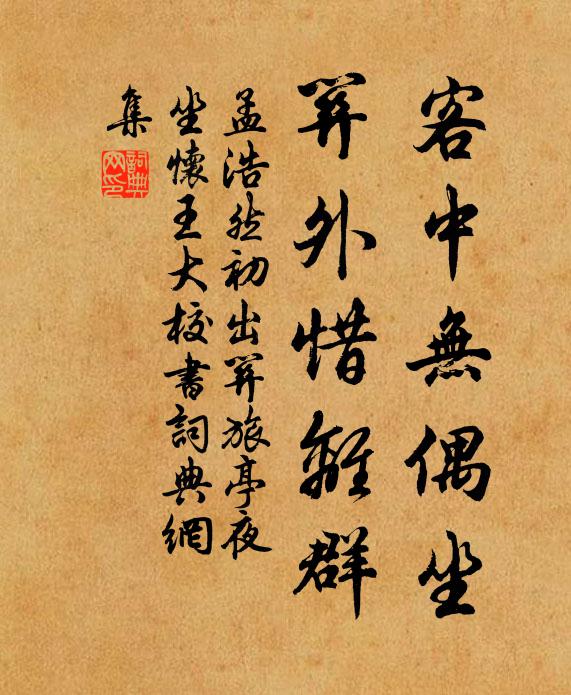 客中無偶坐
關外惜離群
孟浩然初出關旅亭夜
坐懷王大校書詞典網
集
詞典網印